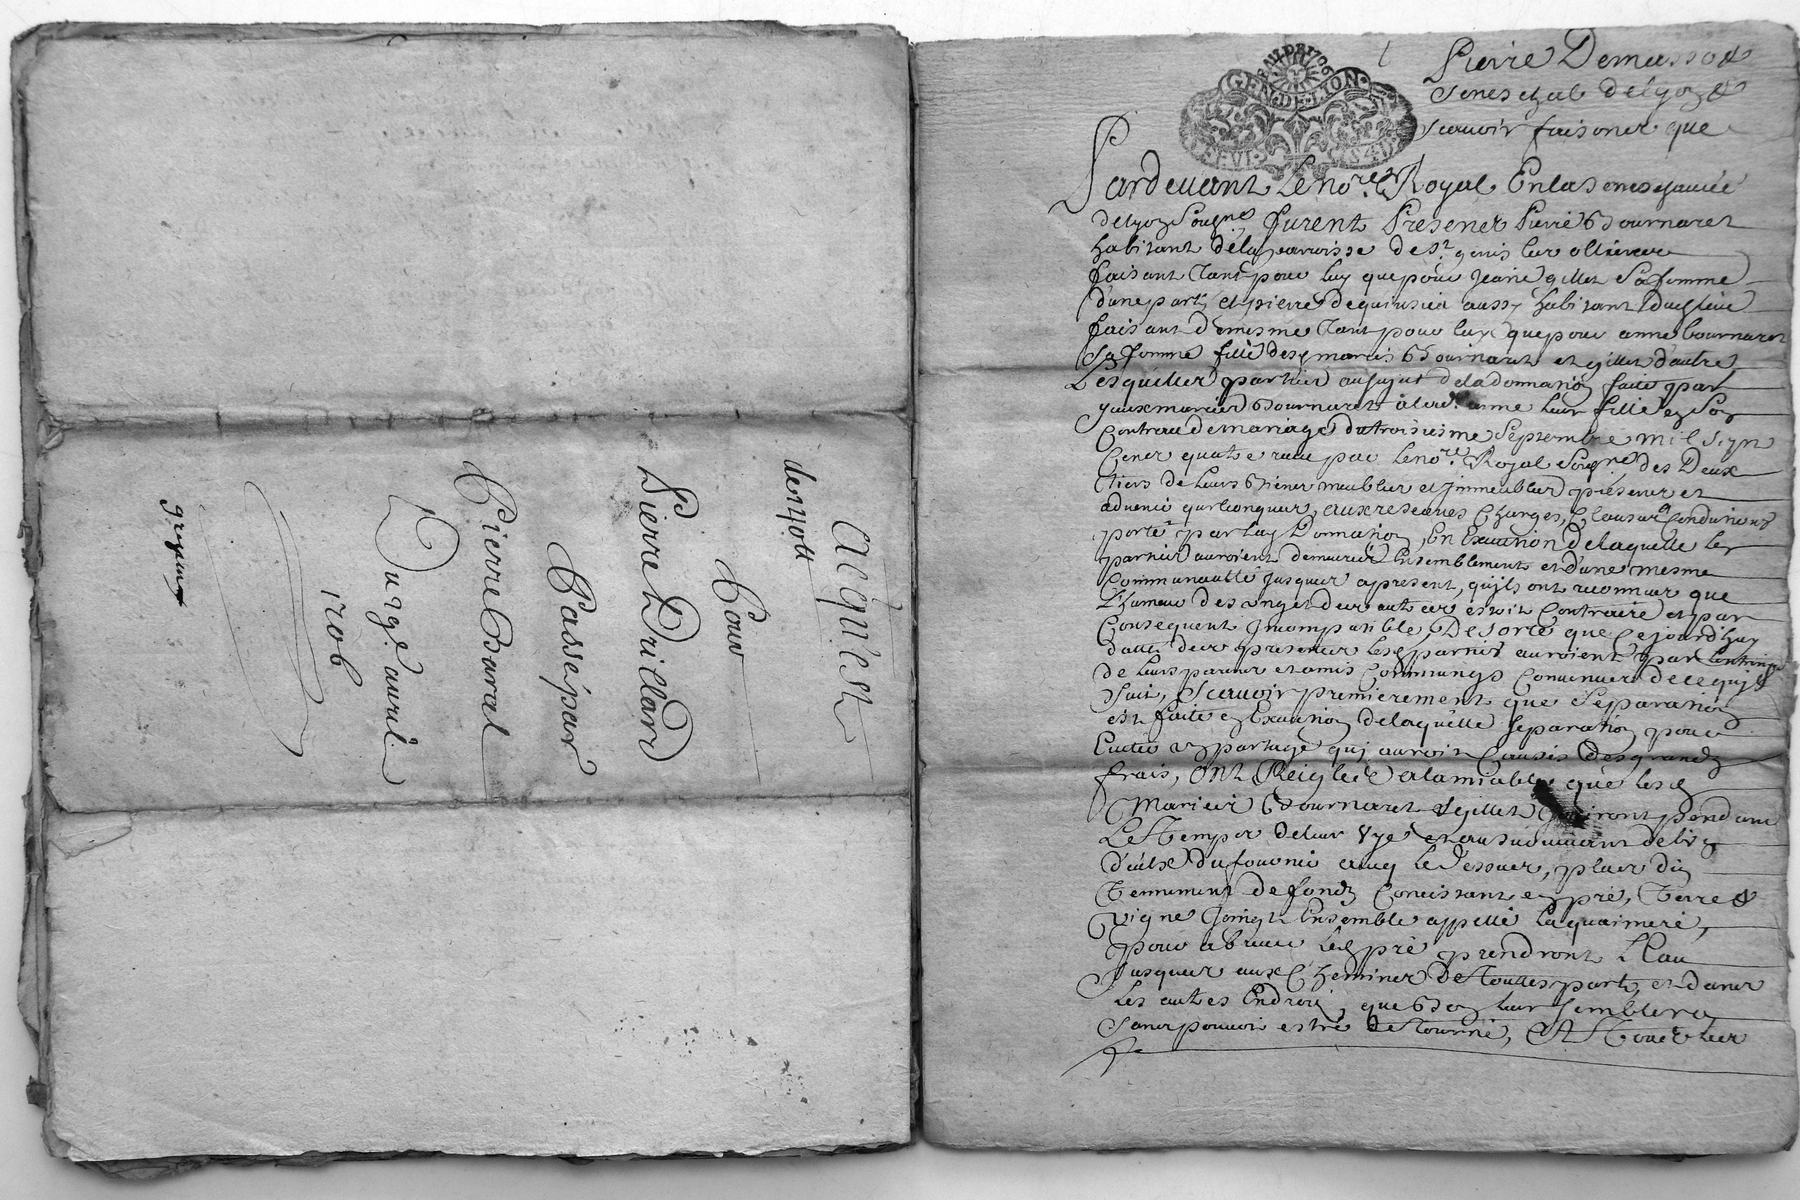 Acquest
de 140 tt
Pour
Pierre Drillard
Passé par
Pierre Baral
Du 29e avril
1706
BAIL DE 1706
GEN. DE LION
Pierre Demasso &
Seneschal de Lyon &
Scavoir faisons que
Pardevant Le nore. Royal En la seneschaucée
de Lyon Soubsne. furent Presens Pierre Bournaret
habitant de la parroisse de St. genis les ollieres
faisant tant pour luy que pour Jeanne gillet Sa femme
d'une part, et pierre dequinsieu aussy habitant dud lieu
faisant de mesme tant pour luy que pour anne bournaret
Sa femme fille desd mariés Bournaret et gillet d'autre,
Lesquelles parties au sujet de la donnation faite par
yceux mariés Bournaret à lad. anne leur fille en Son
Contract de mariage du troisiesme Septembre mil sept
Cens quatre receu par le nore. Royal Soubsne des Deux
tiers de leurs Biens meubles et Immeubles présens et
advenir quelconques, aux reserves Charges, Clauses & Conditions
porté par lad Donnation, En Execution de laquelle les
parties auroient demeuré Ensemblement et d'une mesme
Communauté Jusques apresent, qu'ils ont reconnus que
L'humeur des ungs et des autres estoit Contraire et par
Consequent Incompatible, De sorte que Cejourd'huy
datte des presentes lesd parties auroient par Lentremise
de leurs parens et amis Communs Convenus de ce quy
Suit, Scavoir premierement que Séparation
est faite en Execution de laquelle Separation pour
Eviter un partage quj auroit Causés des grands
frais, ont Reiglée à lamiable que lesd
Mariés Bournaret & gillet Jouiront pendant
Le temps de leur vye et au survivant de
d'eux du four avec le dessus, plus d'un
Tennement de fonds Concistant en pré, Terre &
vigne Joingt Ensemble appellé
pour abreuver led pré prendront l'Eau
Jusques aux Chemins de toutes parts, et dans
les autres Endrois que Bon leur semblera
sans pouvoir estre destourné, Et